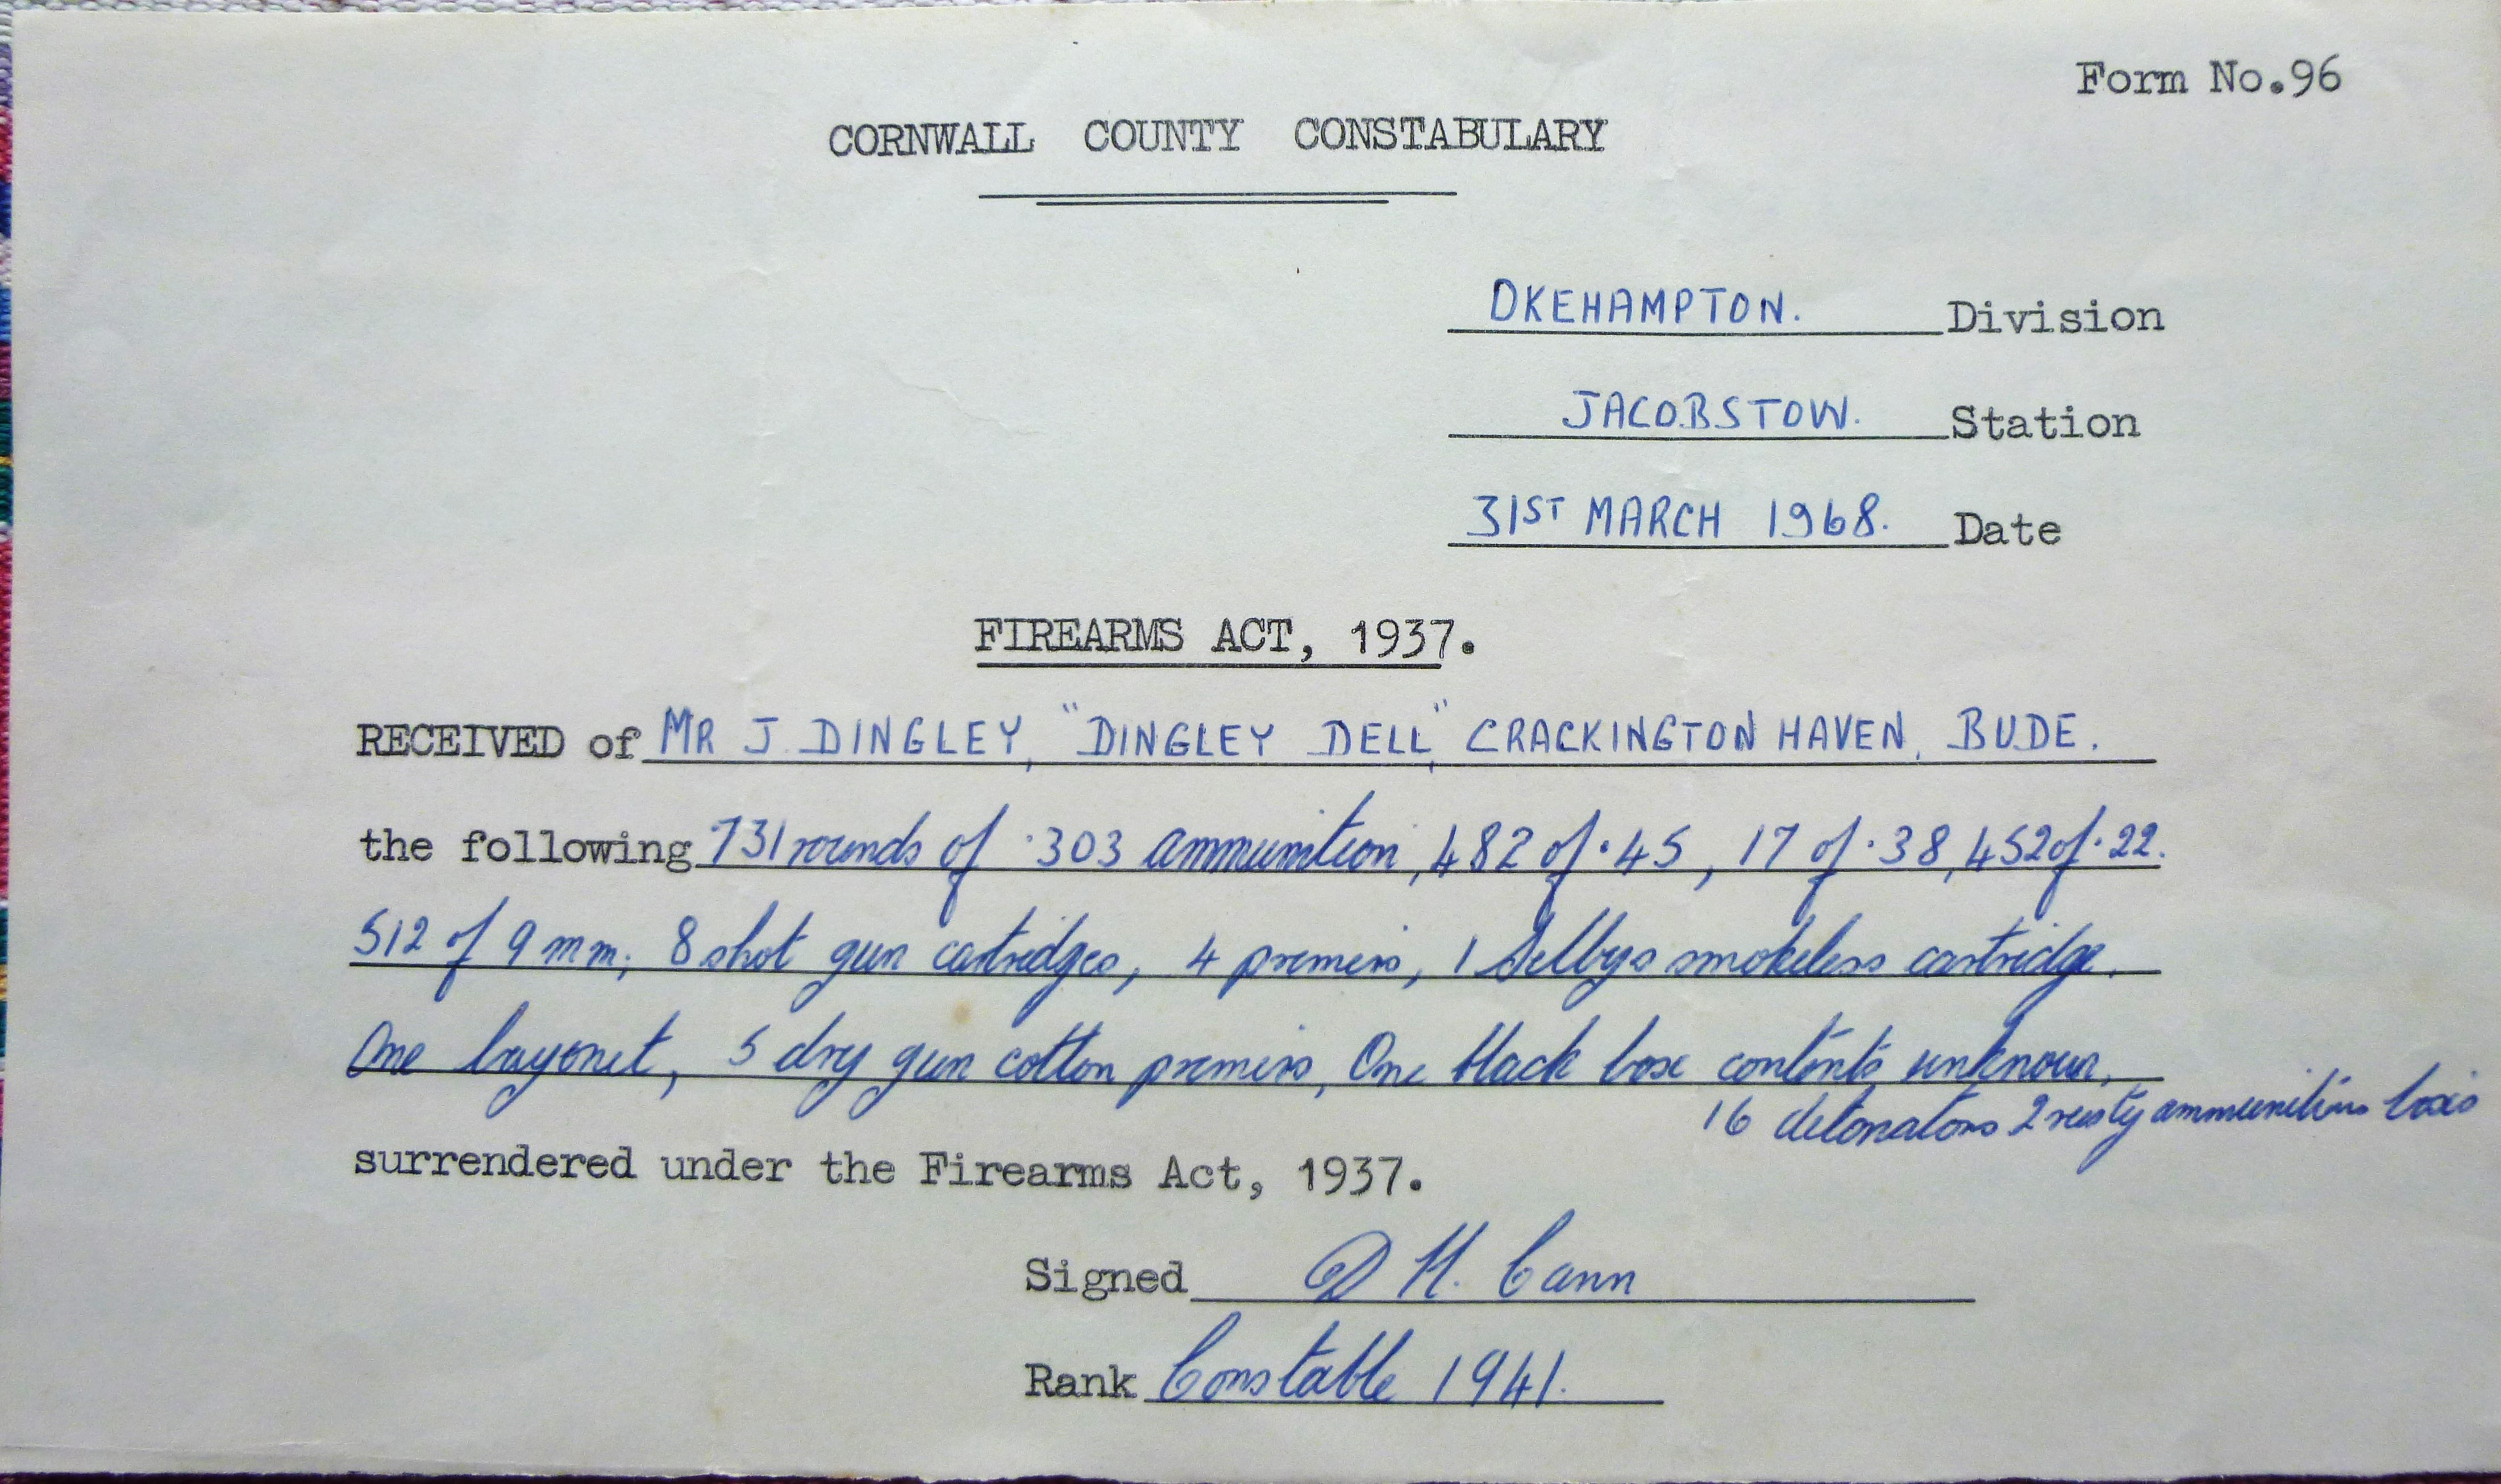 Form No.96
CORNWALL COUNTY CONSTABULARY
OKEHAMPTON. Division
JACOBSTOW. Station
31ST MARCH 1968. Date
FIREARMS ACT, 1937.
RECEIVED of MR J. DINGLEY, "DINGLEY DELL", CRACKINGTON HAVEN, BUDE.
the following 731 rounds of .303 ammunition, 482 of .45, 17 of .38, 452 of .22.
512 of 9 mm; 8 shot gun cartridges, 4 primers, 1 Selbys smokeless cartridge.
One bayonet, 5 dry gun cotton primers, One black box contents unknown.
16 detonators 2 rusty ammunition boxes
surrendered under the Firearms Act, 1937.
Signed D H. Cann
Rank Constable 1941.